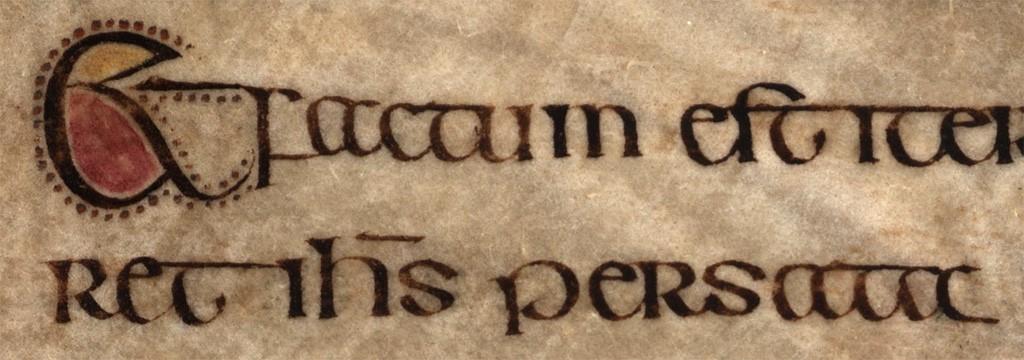 Et factum est iter
ret ih̅s per sata